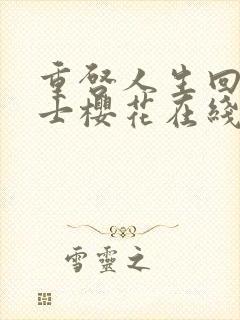 重啓人生回
士櫻花在綫
雪靈之